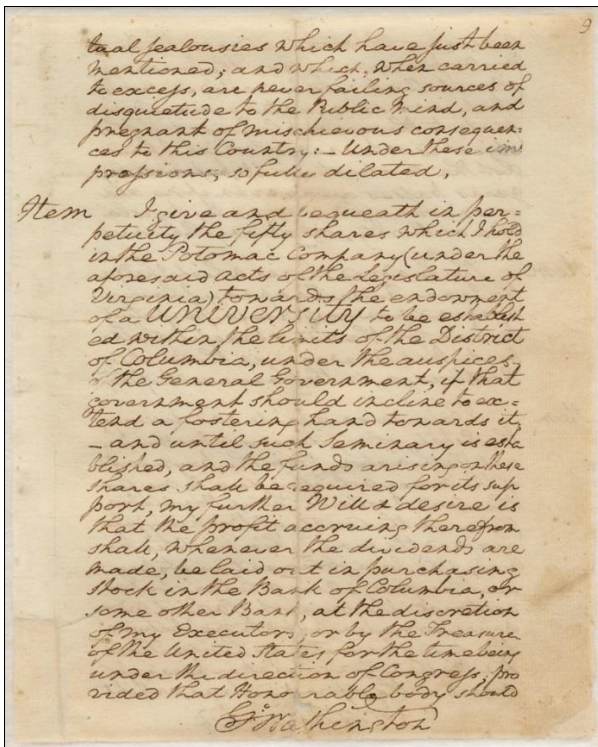 9
tual jealousies which have just been
mentioned; and which, when carried
to excess, are never failing sources of
disquietude to the Public mind, and
pregnant of mischievous consequen:
ces to this Country:— Under these im
pressions, so fully dilated,
Item I give and bequeath in per=
petuity the fifty shares which I hold
in the Potomac Company (under the
aforesaid acts of the Legislature of
Virginia) towards the endowment
of a UNIVERSITY to be establish
ed within the limits of the District
of Columbia, under the auspices
of the General Government, if that
government should incline to ex=
tend a fostering hand towards it,
— and until such Seminary is esta
blished, and the funds arising on these
shares shall be required for its sup
port, my further Will & desire is
that the profit accruing therefrom
shall, whenever the dividends are
made, be laid out in purchasing
stock in the Bank of Columbia, or
some other Bank, at the discretion
of my Executors, or by the Treasurer
of the United States for the time being
under the direction of Congress; pro
vided that Honourable body should
Go: Washington